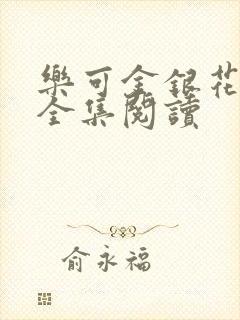 樂可金銀花
全集閱讀
俞永福